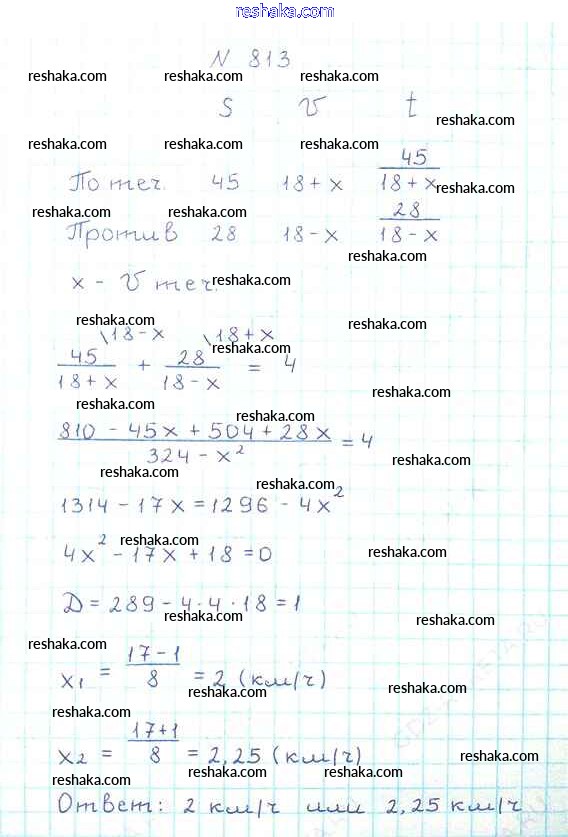 reshaka.com
N 813
reshaka.com reshaka.com reshaka.com
S V t
reshaka.com
reshaka.com reshaka.com reshaka.com
По теч. 45 18+x 45/(18+x)
reshaka.com
reshaka.com reshaka.com
Против 28 18-x 28/(18-x)
reshaka.com
x - V теч.
reshaka.com
reshaka.com reshaka.com
\18-x \18+x
reshaka.com
45/(18+x) + 28/(18-x) = 4
reshaka.com
reshaka.com
reshaka.com
(810 - 45x + 504 + 28x)/(324 - x²) = 4
reshaka.com
reshaka.com
reshaka.com
1314 - 17x = 1296 - 4x²
reshaka.com
reshaka.com
4x² - 17x + 18 = 0
reshaka.com
D = 289 - 4·4·18 = 1
reshaka.com
reshaka.com
reshaka.com
x1 = (17-1)/8 = 2 (км/ч)
reshaka.com
reshaka.com
reshaka.com
x2 = (17+1)/8 = 2,25 (км/ч)
reshaka.com
reshaka.com reshaka.com reshaka.com
Ответ: 2 км/ч или 2,25 км/ч